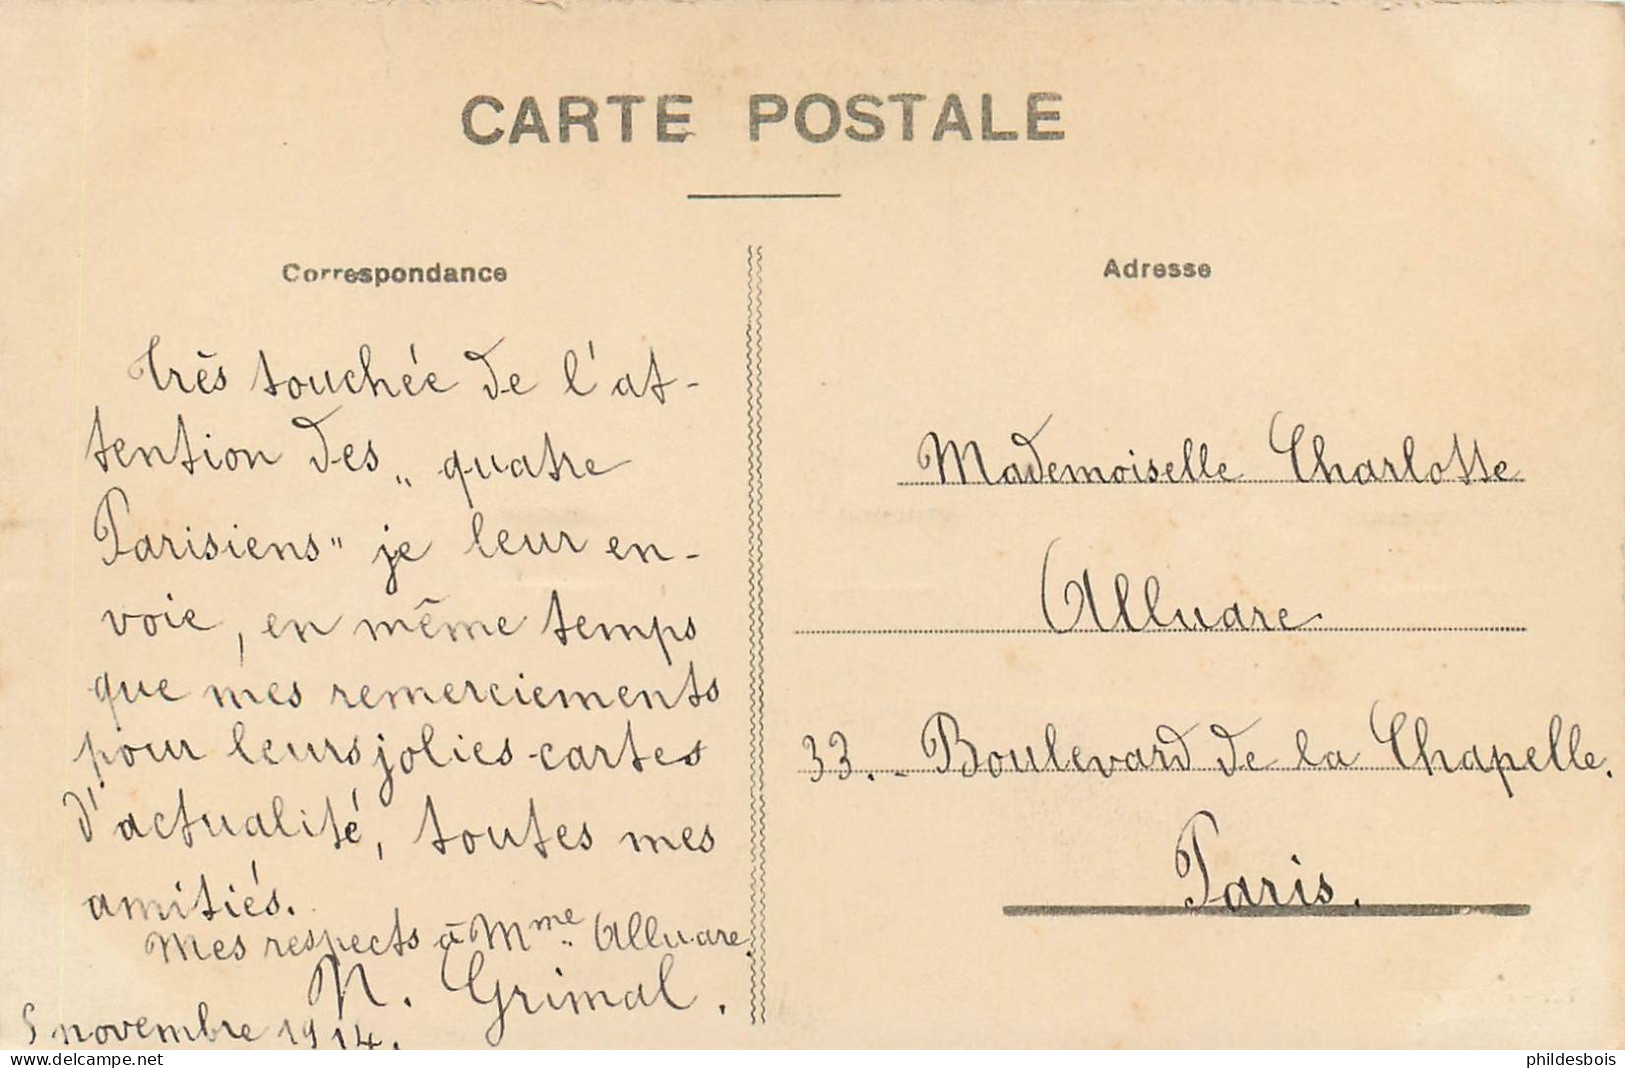 CARTE POSTALE
Correspondance
Très touchée de l'at-
tention des „ quatre
Parisiens" je leur en-
voie, en même temps
que mes remerciements
pour leurs jolies cartes
d'actualité, toutes mes
amitiés.
Mes respects à Mme Alluare.
N. Grimal.
5 novembre 1914.
Adresse
Mademoiselle Charlotte
Alluare
33. - Boulevard de la Chapelle.
Paris.
www.delcampe.net
phildesbois